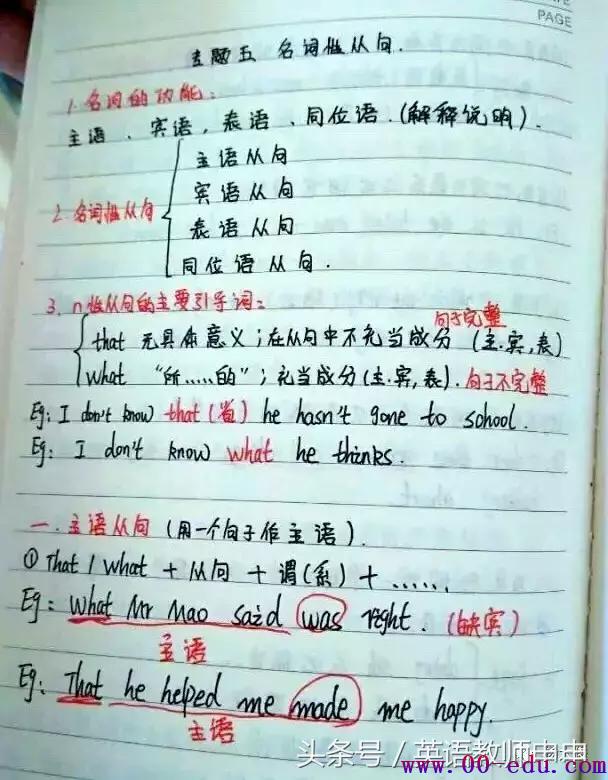 PAGE
专题五 名词性从句.
1. 名词的功能:
主语、宾语,表语、同位语.(解释说明).
主语从句
宾语从句
2. 名词性从句
表语从句
同位语从句.
3. n性从句的主要引导词:
句子完整
that 无具体意义;在从句中不充当成分 (主.宾,表)
what “所……的”;充当成分(主.宾,表). 句子不完整
Eg: I don't know that (省) he hasn't gone to school.
Eg: I don't know what he thinks.
一. 主语从句 (用一个句子作主语).
① That / what + 从句 + 谓(系) + ......
Eg: What Mr Mao said was right. (缺宾)
主语
Eg: That he helped me made me happy.
主语
头条号 / 英语教师申申
www.00-edu.com